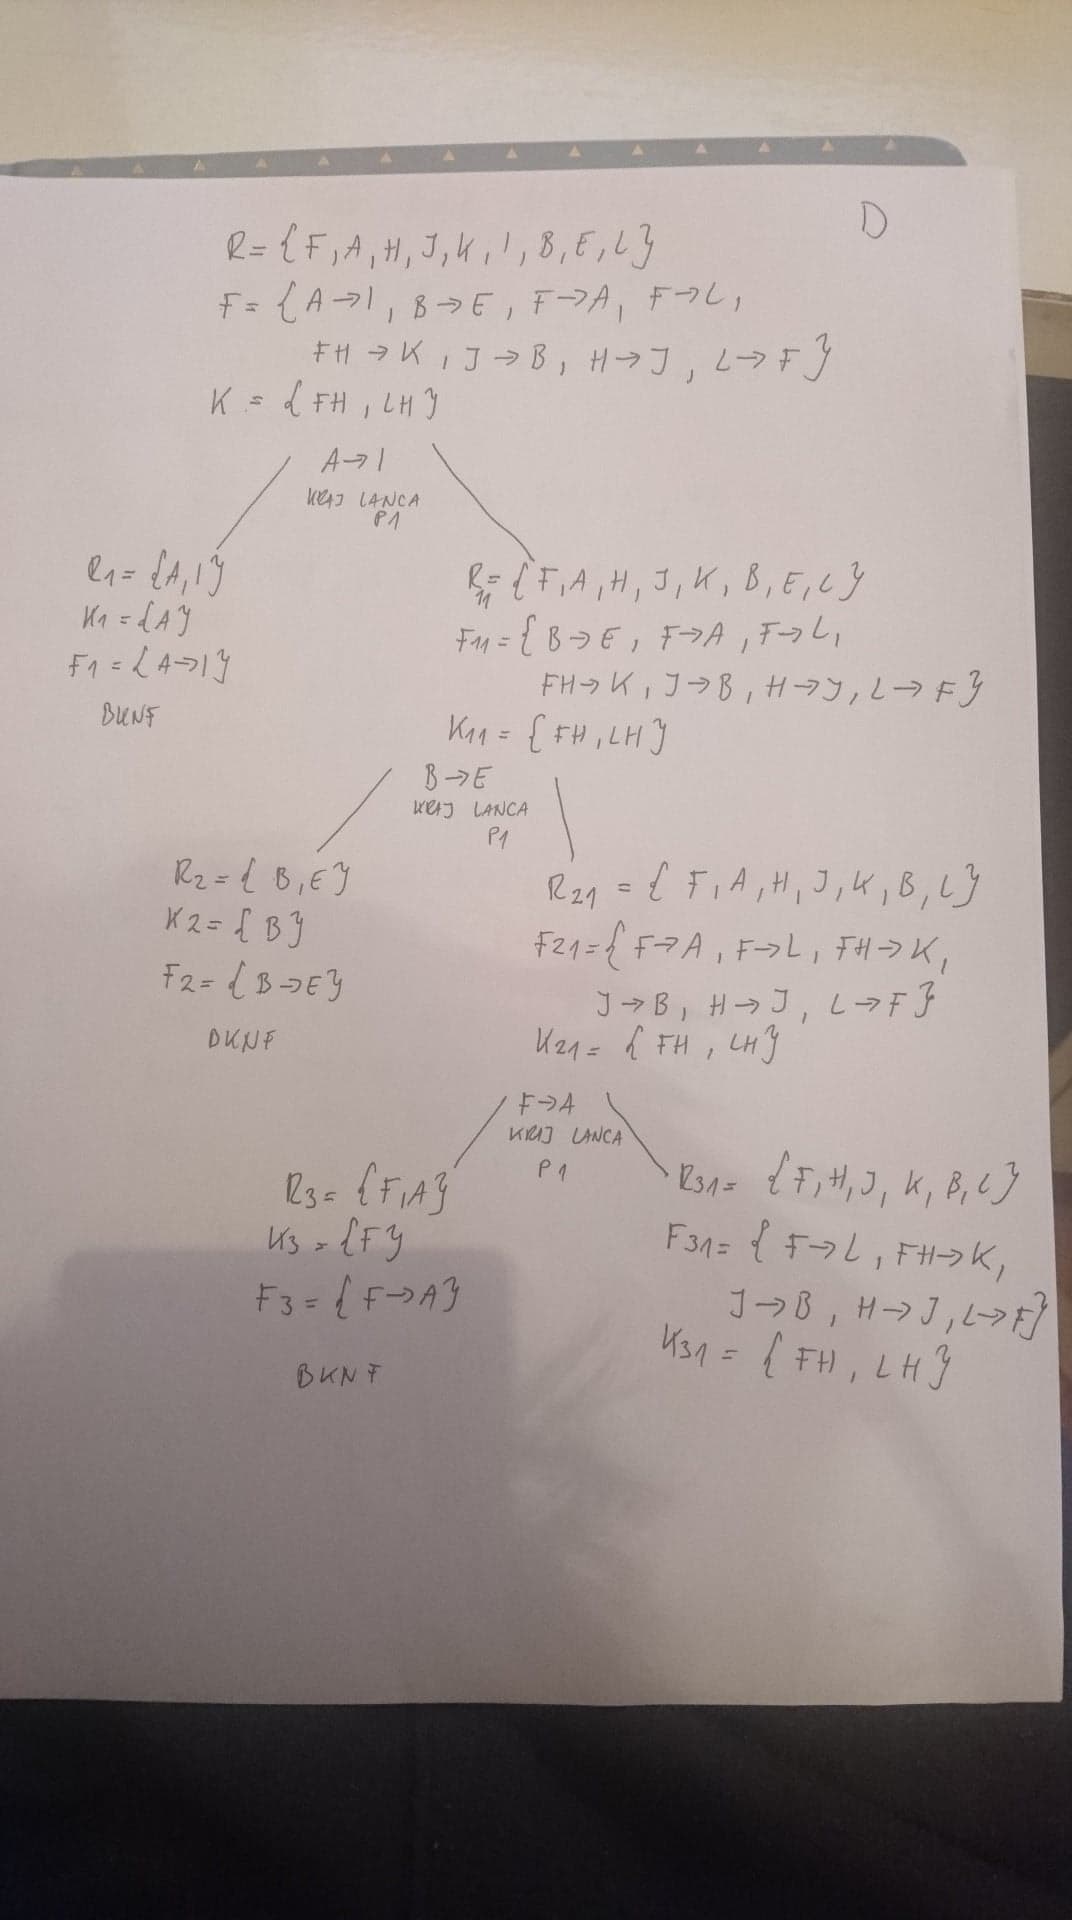 D
R = {F, A, H, J, K, I, B, E, L}
F = {A→I, B→E, F→A, F→L,
FH→K, J→B, H→J, L→F}
K = {FH, LH}
A→I
KRAJ LANCA
P1
R1 = {A, I}
K1 = {A}
F1 = {A→I}
BKNF
R11 = {F, A, H, J, K, B, E, L}
F11 = {B→E, F→A, F→L,
FH→K, J→B, H→J, L→F}
K11 = {FH, LH}
B→E
KRAJ LANCA
P1
R2 = {B, E}
K2 = {B}
F2 = {B→E}
BKNF
R21 = {F, A, H, J, K, B, L}
F21 = {F→A, F→L, FH→K,
J→B, H→J, L→F}
K21 = {FH, LH}
F→A
KRAJ LANCA
P1
R3 = {F, A}
K3 = {F}
F3 = {F→A}
BKNF
R31 = {F, H, J, K, B, L}
F31 = {F→L, FH→K,
J→B, H→J, L→F}
K31 = {FH, LH}